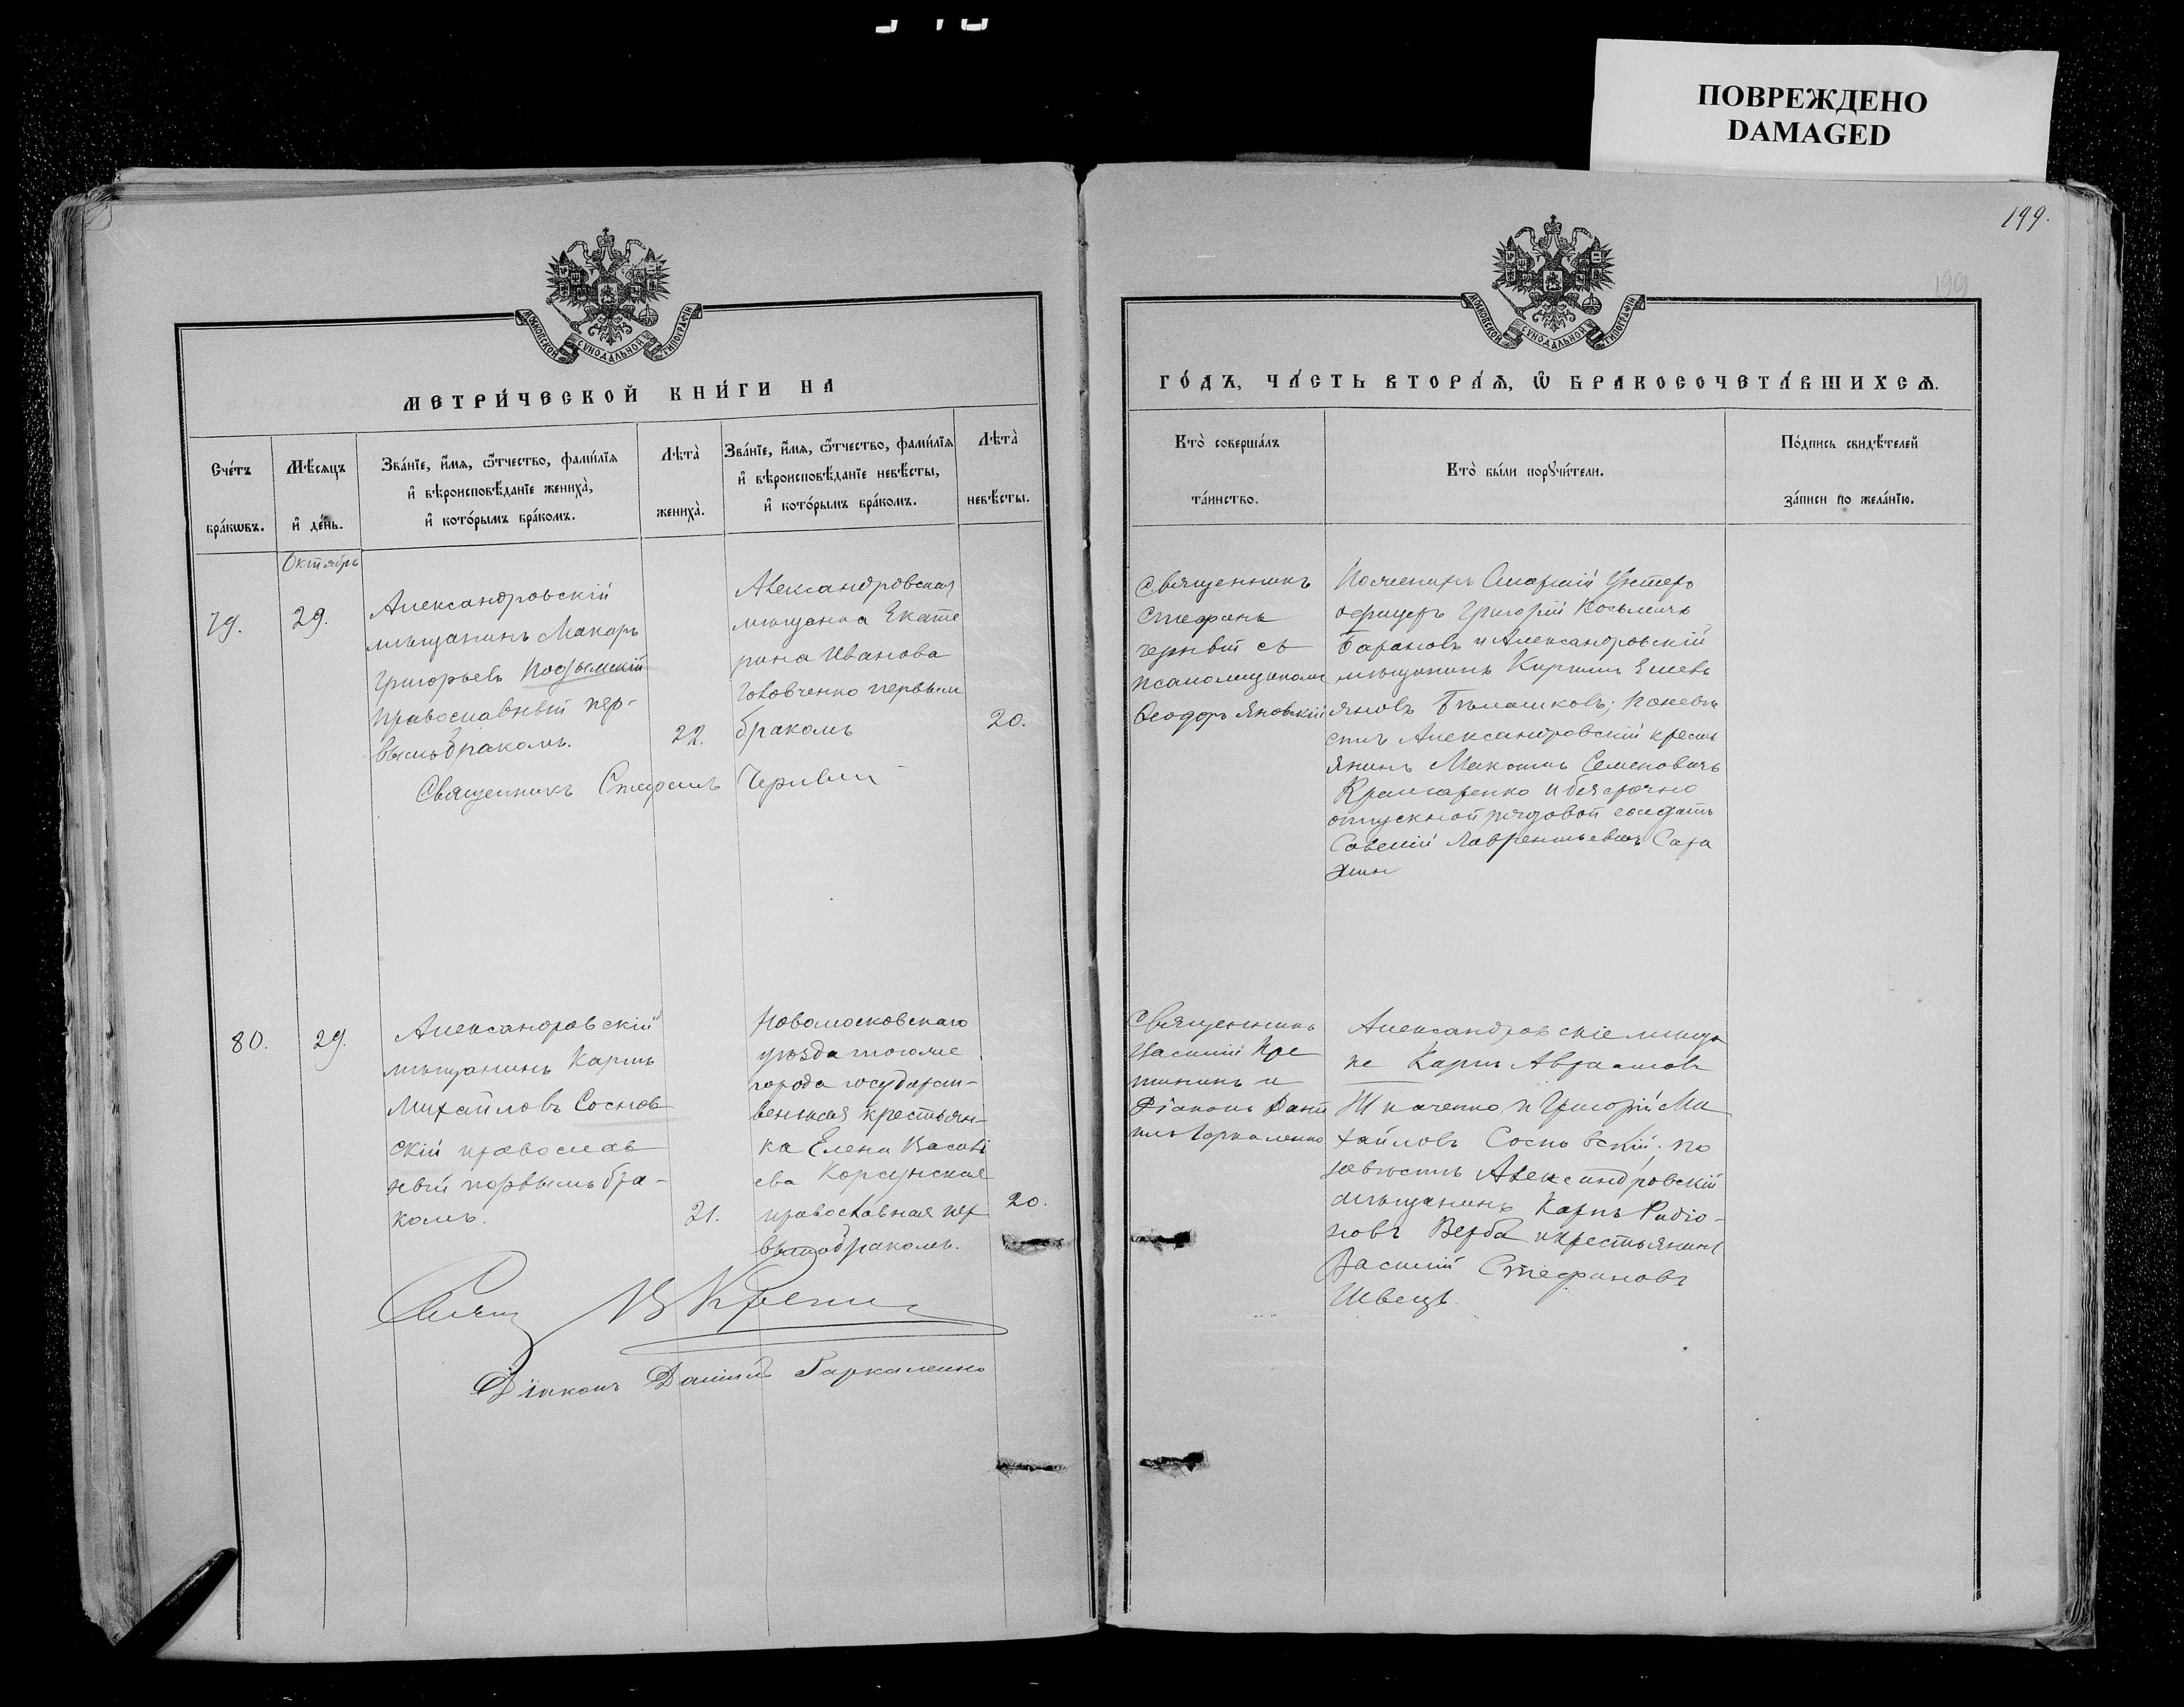 ПОВРЕЖДЕНО
DAMAGED
199.
199
МОСКОВСКОЙ СУНОДАЛЬНОЙ ТИПОГРАФІИ
МЕТРИ́ЧЕСКОЙ КНИ́ГИ НА
Сче́тъ
бра́кωвъ.
Мѣ́сѧцъ
и҆ де́нь.
Зва́нїе, и҆́мѧ, ѻ҆́тчество, фами́лїѧ
и҆ вѣроисповѣ́данїе жениха̀,
и҆ кото́рымъ бра́комъ.
Лѣта̀
жениха̀.
Зва́нїе, и҆́мѧ, ѻ҆́тчество, фами́лїѧ
и҆ вѣроисповѣ́данїе невѣ́сты,
и҆ кото́рымъ бра́комъ.
Лѣта̀
невѣ́сты.
Октябрь
79.
29.
Александровскій
мѣщанинъ Макаръ
Григорьевъ Подымскій
православный пер-
вымъ бракомъ.
22.
Александровская
мѣщанка Екате
рина Иванова
Головченко первым
бракомъ
20.
Священникъ Стефанъ Чернвый
80.
29.
Александровскій
мѣщанинъ Карпъ
Михайловъ Соснов
скій православ
ный первымъ бра-
комъ.
21.
Новомосковскаго
уѣзда тогоже
города государст-
венная крестьян-
ка Елена Василі
ева Корсунская
православная пер
вымъ бракомъ.
20.
Свящ В Крени
Діаконъ Даніилъ Гаркаленко
МОСКОВСКОЙ СУНОДАЛЬНОЙ ТИПОГРАФІИ
ГО́ДЪ, ЧА́СТЬ ВТОРА́Ѧ, Ѡ҆ БРАКОСОЧЕТА́ВШИХСѦ.
Кто̀ соверша́лъ
та́инство.
Кто̀ бы́ли порꙋчи́тели.
По́дпись свидѣ́телей
за́писи по жела́нїю.
Священникъ
Стефанъ
Чернвый съ
псаломщикомъ
Ѳеодоръ Яновскій
По женихѣ Старшій Унтеръ
офицеръ Григорій Косьмичъ
Барановъ и Александровскій
мѣщанинъ Кириллъ Емель
яновъ Бѣлашиковъ; по невѣ
стѣ Александровскій кресть
янинъ Максимъ Семеновичъ
Крамаренко и безсрочно
отпускной рядовой солдатъ
Савелій Лаврентьевичъ
Священникъ
Василій Кре
и
Діаконъ Дані
илъ Гаркаленко
Александровскіе мѣща
не Карпъ Авраамовъ
Ткаченко и Григорій Ми
хайловъ Сосновскій; по
невѣстѣ Александровскій
мѣщанинъ Карпъ Радіо-
новъ Верба и крестьянинъ
Василій Стефановъ
Швецъ